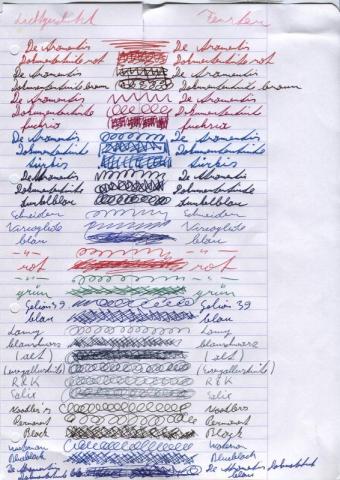 Lichtgeschützt Fenster
De Atramentis De Atramentis
Dokumententinte rot Dokumententinte rot
De Atramentis De Atramentis
Dokumententinte braun Dokumententinte braun
De Atramentis De Atramentis
Dokumententinte Dokumententinte
fuchsia fuchsia
De Atramentis De Atramentis
Dokumententinte Dokumententinte
türkis türkis
De Atramentis De Atramentis
Dokumententinte Dokumententinte
dunkelblau dunkelblau
Schneider Schneider
Visco glide Visco glide
blau blau
-"- -"-
rot rot
-"- -"-
grün grün
Gelion 39 Gelion 39
blau blau
Lamy Lamy
blauschwarz blauschwarz
(alt) (alt)
(Eisengallustinte) (Eisengallustinte)
R&K R&K
Salix Salix
Noodler's Noodlers
Permanent Permanent
Black Black
Waterman Waterman
Blueblack Blueblack
De Atramentis De Atramentis Dokumententinte
Dokumententinte blau blau